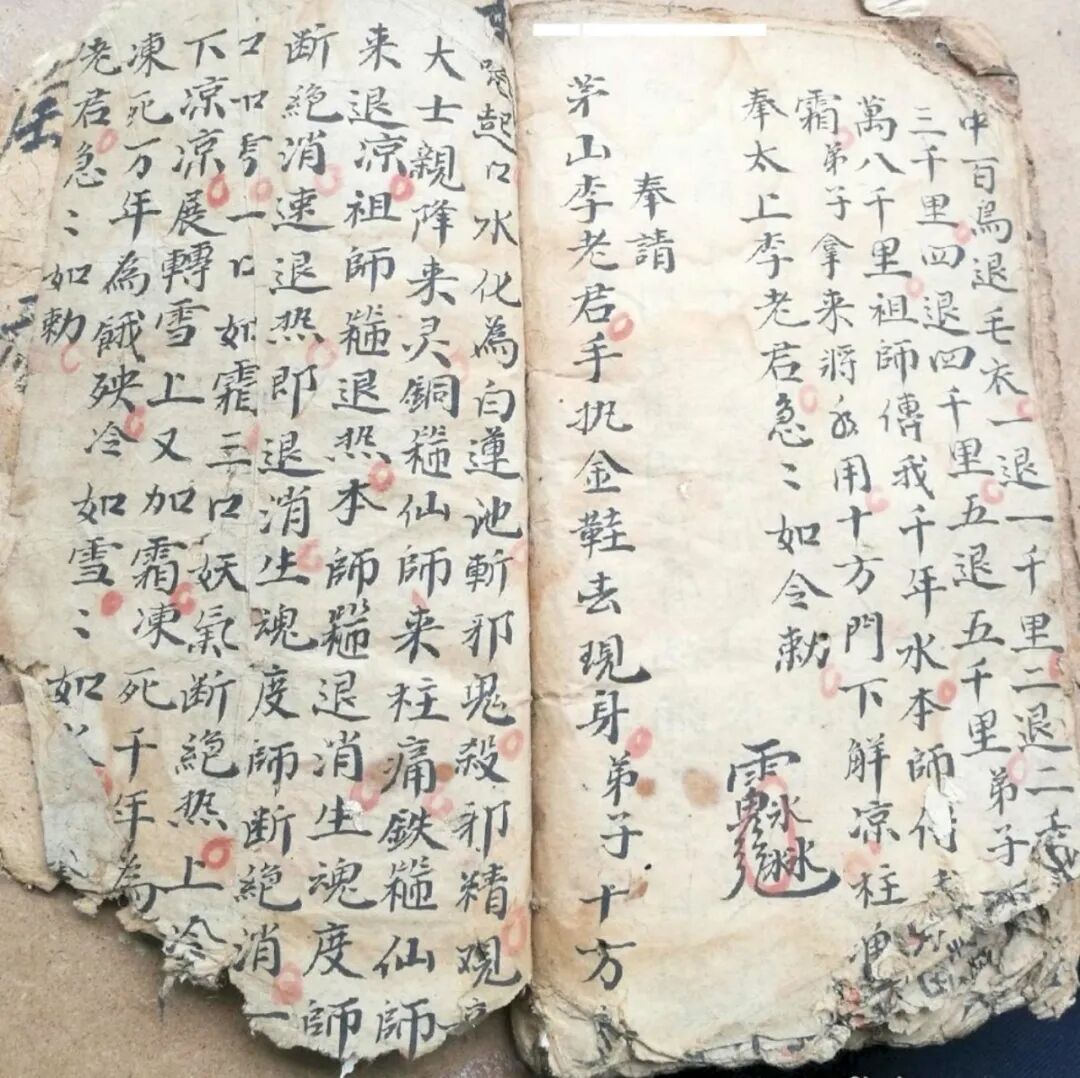 中百鳥退毛衣一退一千里二退二千
三千里四退四千里五退五千里弟子
萬八千里祖師傳我千年水本師傳
霜弟子拿来將用十方門下解凉柱
奉太上李老君急〻如令勅
奉請
茅山李老君手执金鞋去現身弟子十方
起口水化為白蓮池斬邪鬼殺邪精观
大士親降来灵銅箍仙師来柱痛鉄箍仙師
来退凉祖師箍退热本師箍退消生魂度師
断絕消速退热即退消生魂度師断絕消一
口口一口如霜三口妖氣断絕热上冷
下凉凉展轉雪上又加霜凍死千年為
凍死万年為餓殃冷如雪〻如
老君急〻如勅